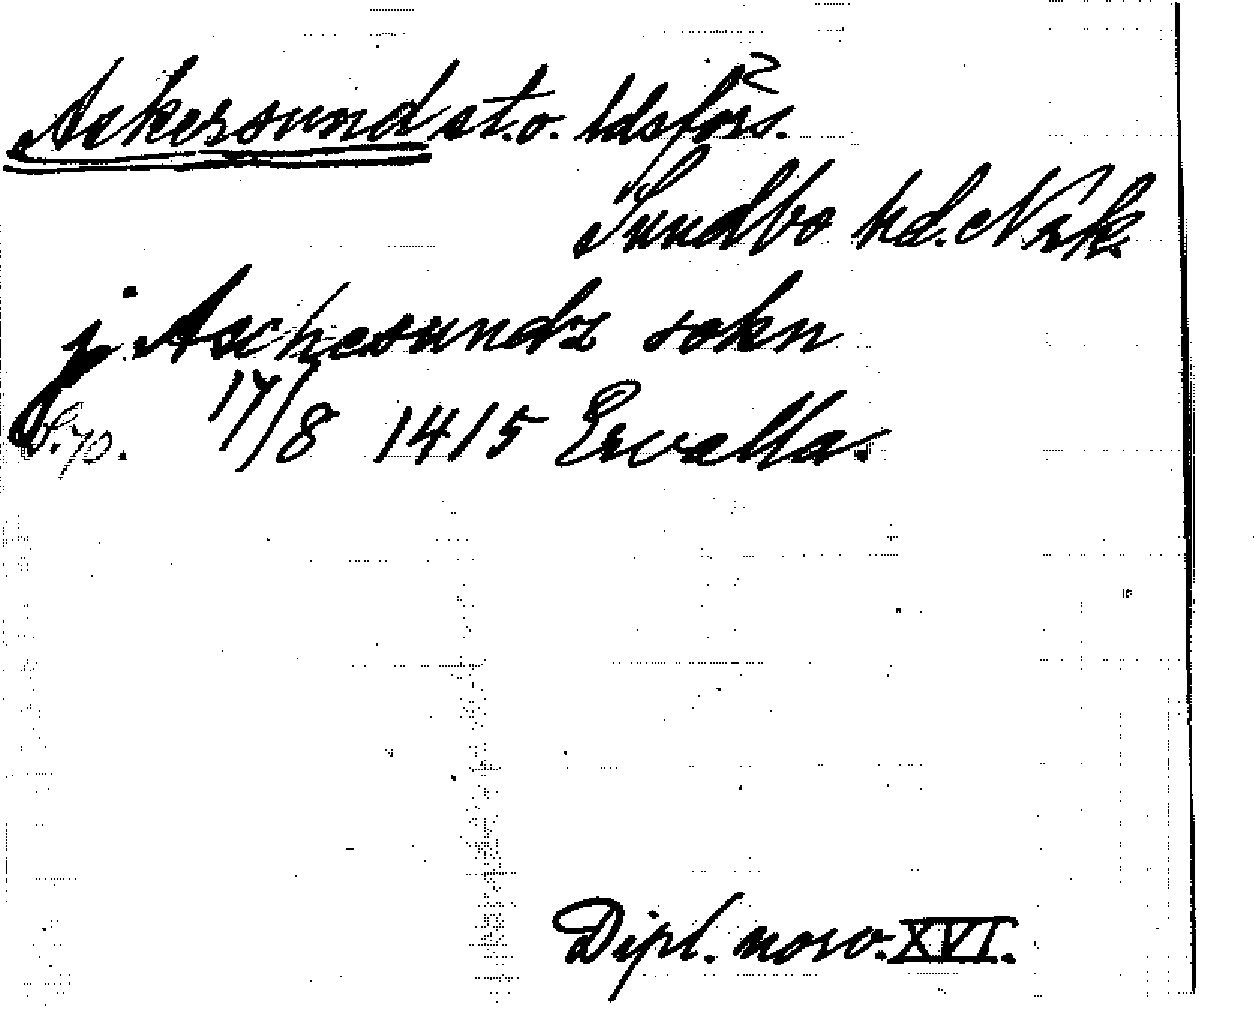 Askersund st. o. ldsförs. 2
Sundbo hd. Närk.
j Aschesundz sokn
S. 70. 17/8 1415 Ervalla.
Dipl. norv. XVI.